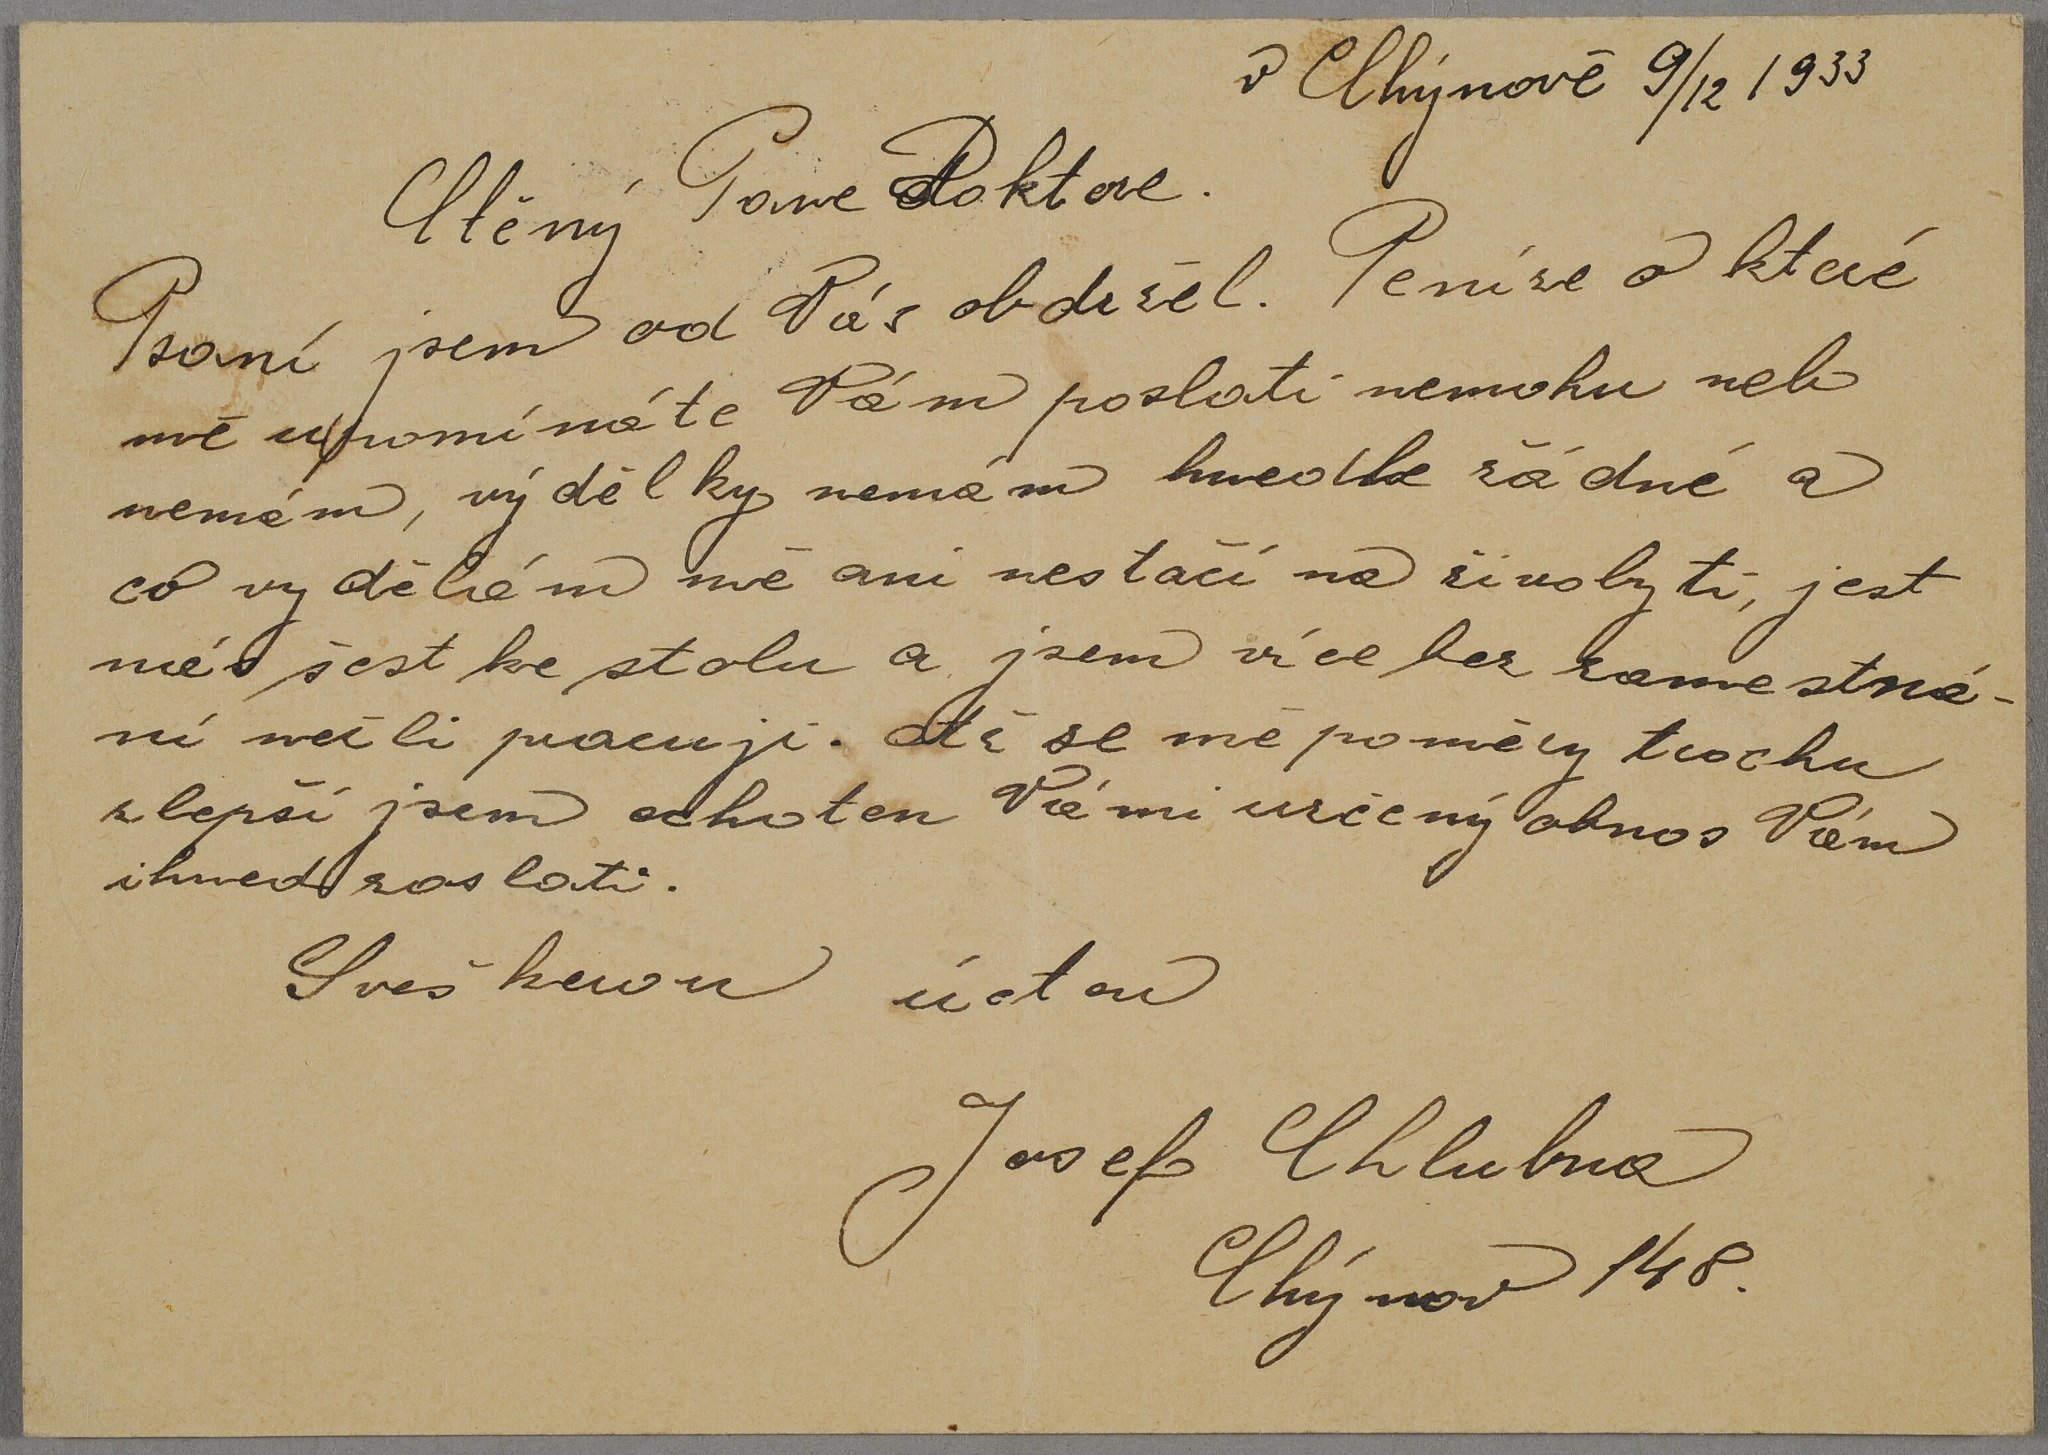 v Chýnově 9/12 1933
Ctěný Pane Doktore.
Psaní jsem od Vás obdržel. Peníze o které
mě upomínáte Vám poslati nemohu neb
nemám, výdělky nemám hnedle žádné a
co vydělám mě ani nestačí na živobytí, jest
nás šest ke stolu a jsem více bez zamestná-
ní nežli pracuji. Až se mé poměry trochu
zlepší jsem ochoten Vámi určený obnos Vám
ihned zaslati.
S veškerou úctou
Josef Chlubna
Chýnov 148.